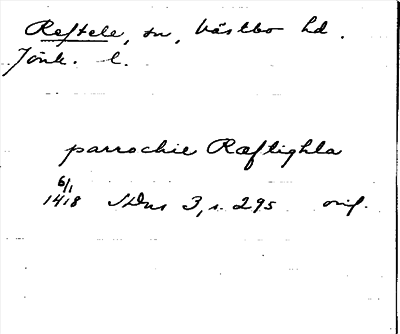 Reftele, sn, Västbo hd.
Jönk. l.
parrochie Ræftighla
6/1
1418 SDns 3, s. 295 orig.